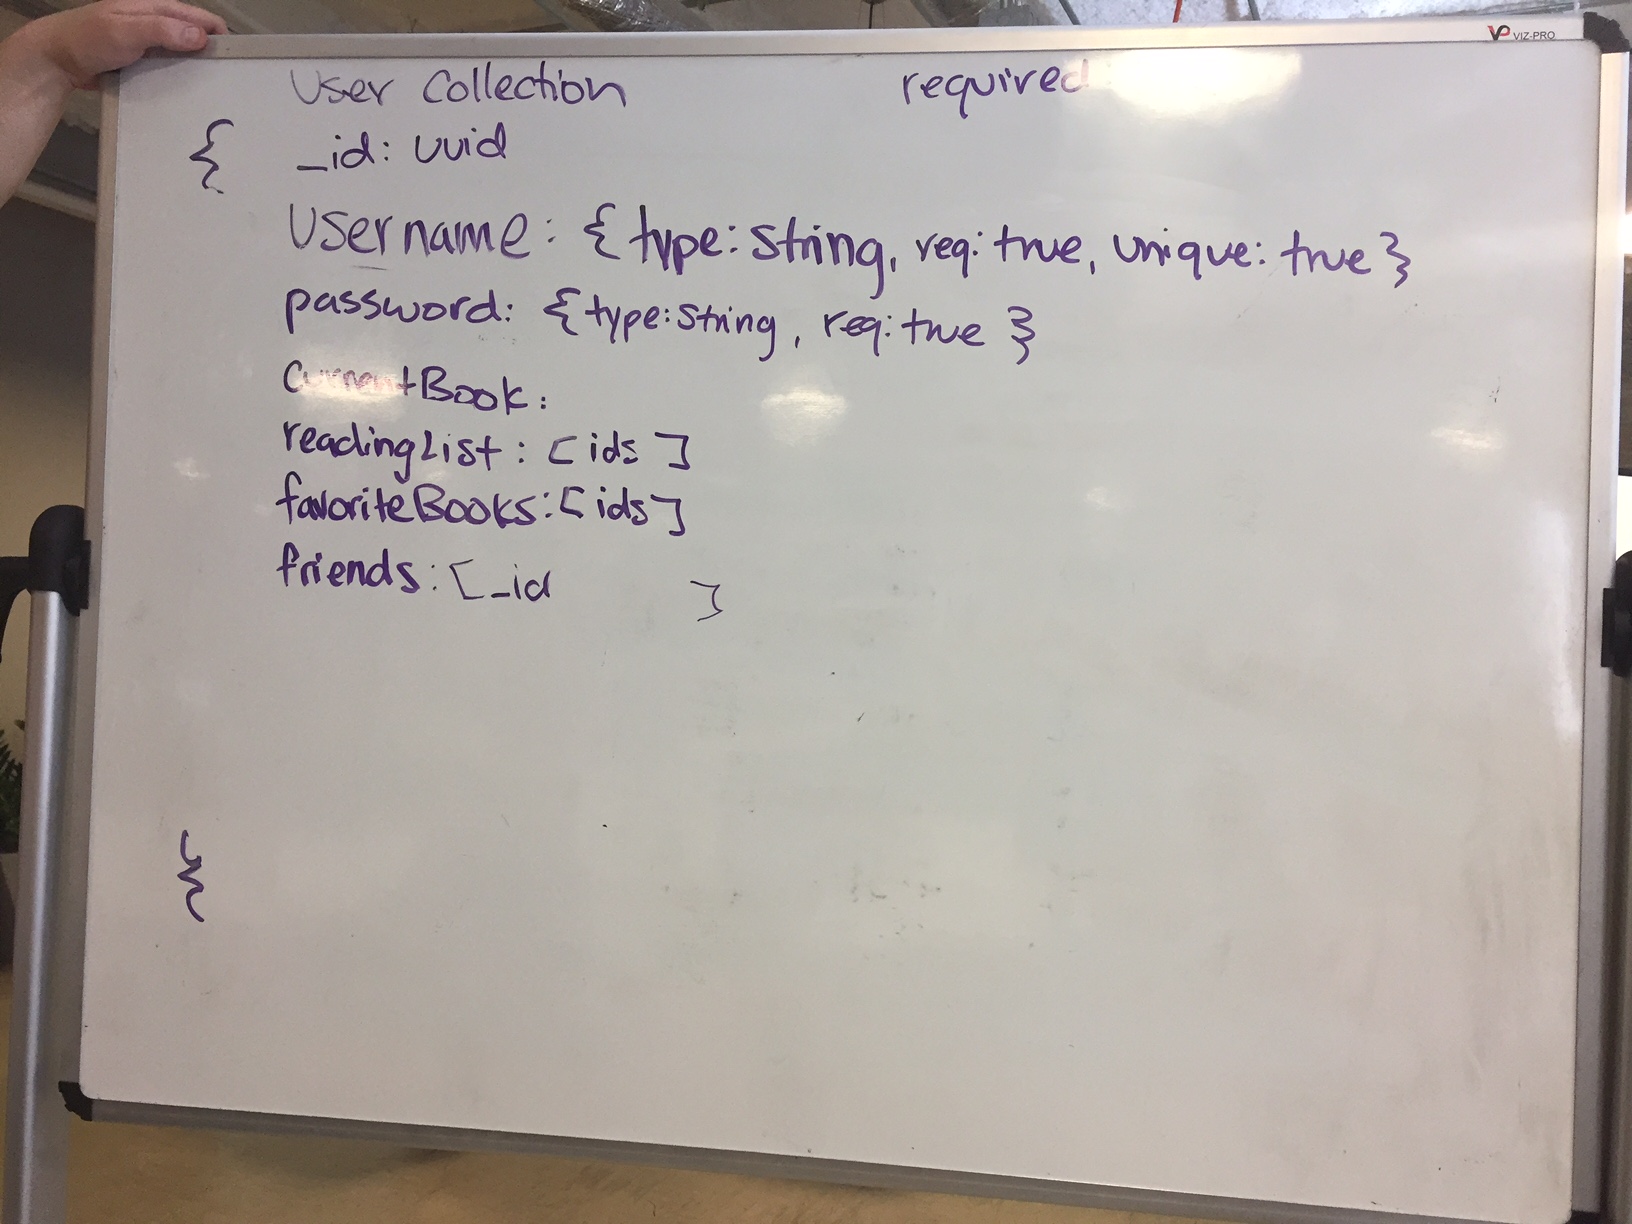 VP VIZ-PRO
User Collection required
{ _id: uuid
Username: {type: String, req: true, unique: true}
password: {type: String, req: true}
currentBook:
readingList: [ids]
favoriteBooks: [ids]
friends: [_id ]
}